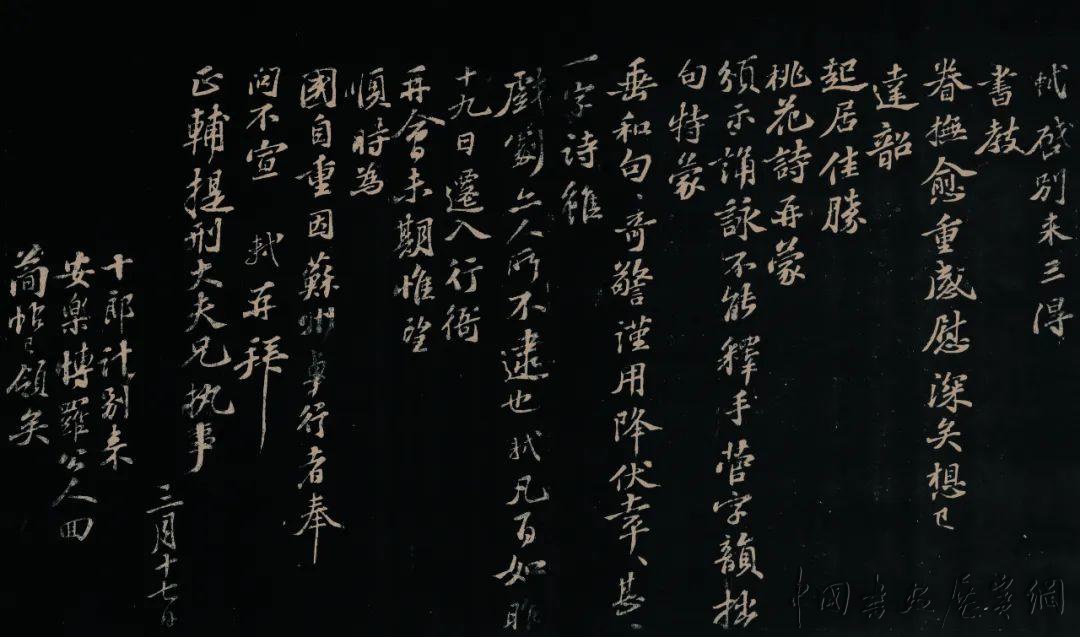 軾啓別来三得
書教
眷撫愈重感慰深矣想已
達韶
起居佳勝
桃花詩再蒙
頒示誦詠不能釋手菅字韻拙
句特蒙
垂和句句奇警謹用降伏幸幸甚甚
一字詩雖
戲劇亦人所不逮也軾凡百如昨
十九日遷入行衙
再會未期惟望
順時為
國自重因蘇州卓行者奉
問不宣 軾再拜
正輔提刑大夫兄执事
三月十七日
十郎計別来
安樂博羅公人回
簡帖已領矣
中國書法